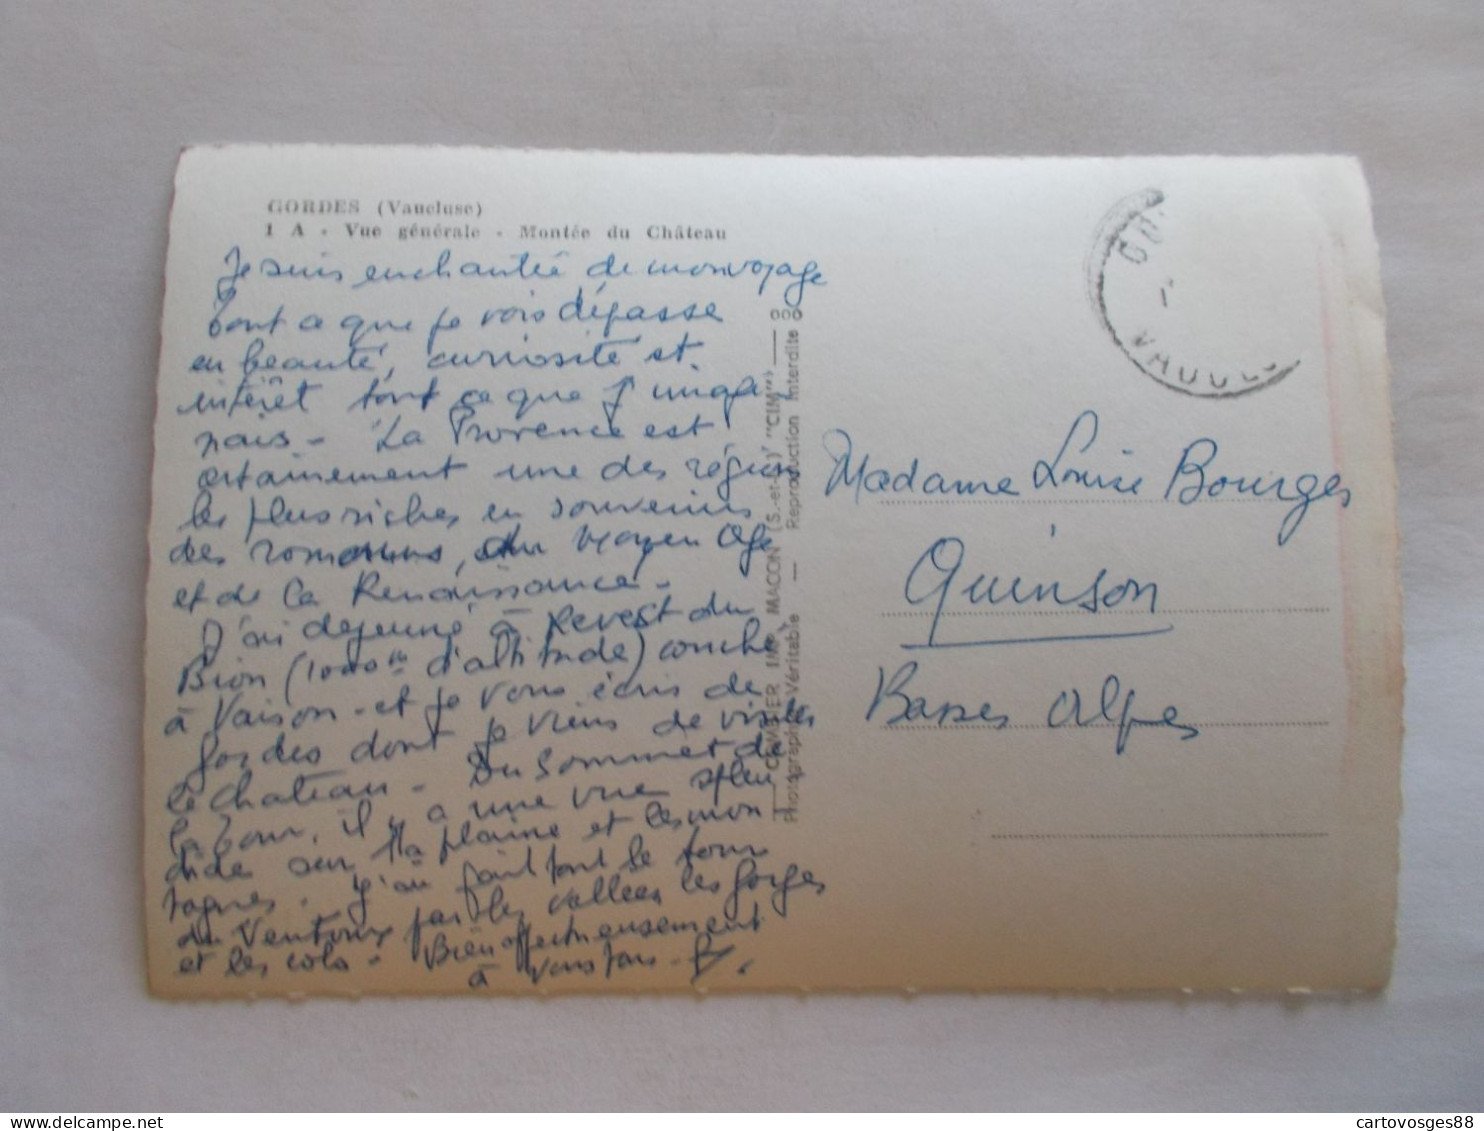 GORDES (Vaucluse)
1 A - Vue générale - Montée du Château
Je suis enchantée de mon voyage
Tout ce que je vois dépasse
en beauté, curiosité et
intérêt tout ce que j'imagi
nais - La Provence est
certainement une des régions
les plus riches en souvenirs
des romains, du Moyen Age
et de la Renaissance -
J'ai dejeuné à Revest du
Bion (1000 m d'altitude) couché
à Vaison - et je vous écris de
Gordes dont je viens de visiter
le chateau - Du sommet de
la Tour, il y a une vue splen
dide sur la plaine et les mon
tagnes. J'ai fait tout le tour
du Ventoux par les vallées les gorges
et les cols - Bien affectueusement
à vous tous -
COMBIER IMP. MACON (S.-et-L.) "CIM"
Photographie Véritable — Reproduction Interdite
GO
VAUCLU
Madame Louise Bourges
Quinson
Basses Alpes
delcampe.net
cartovosges88